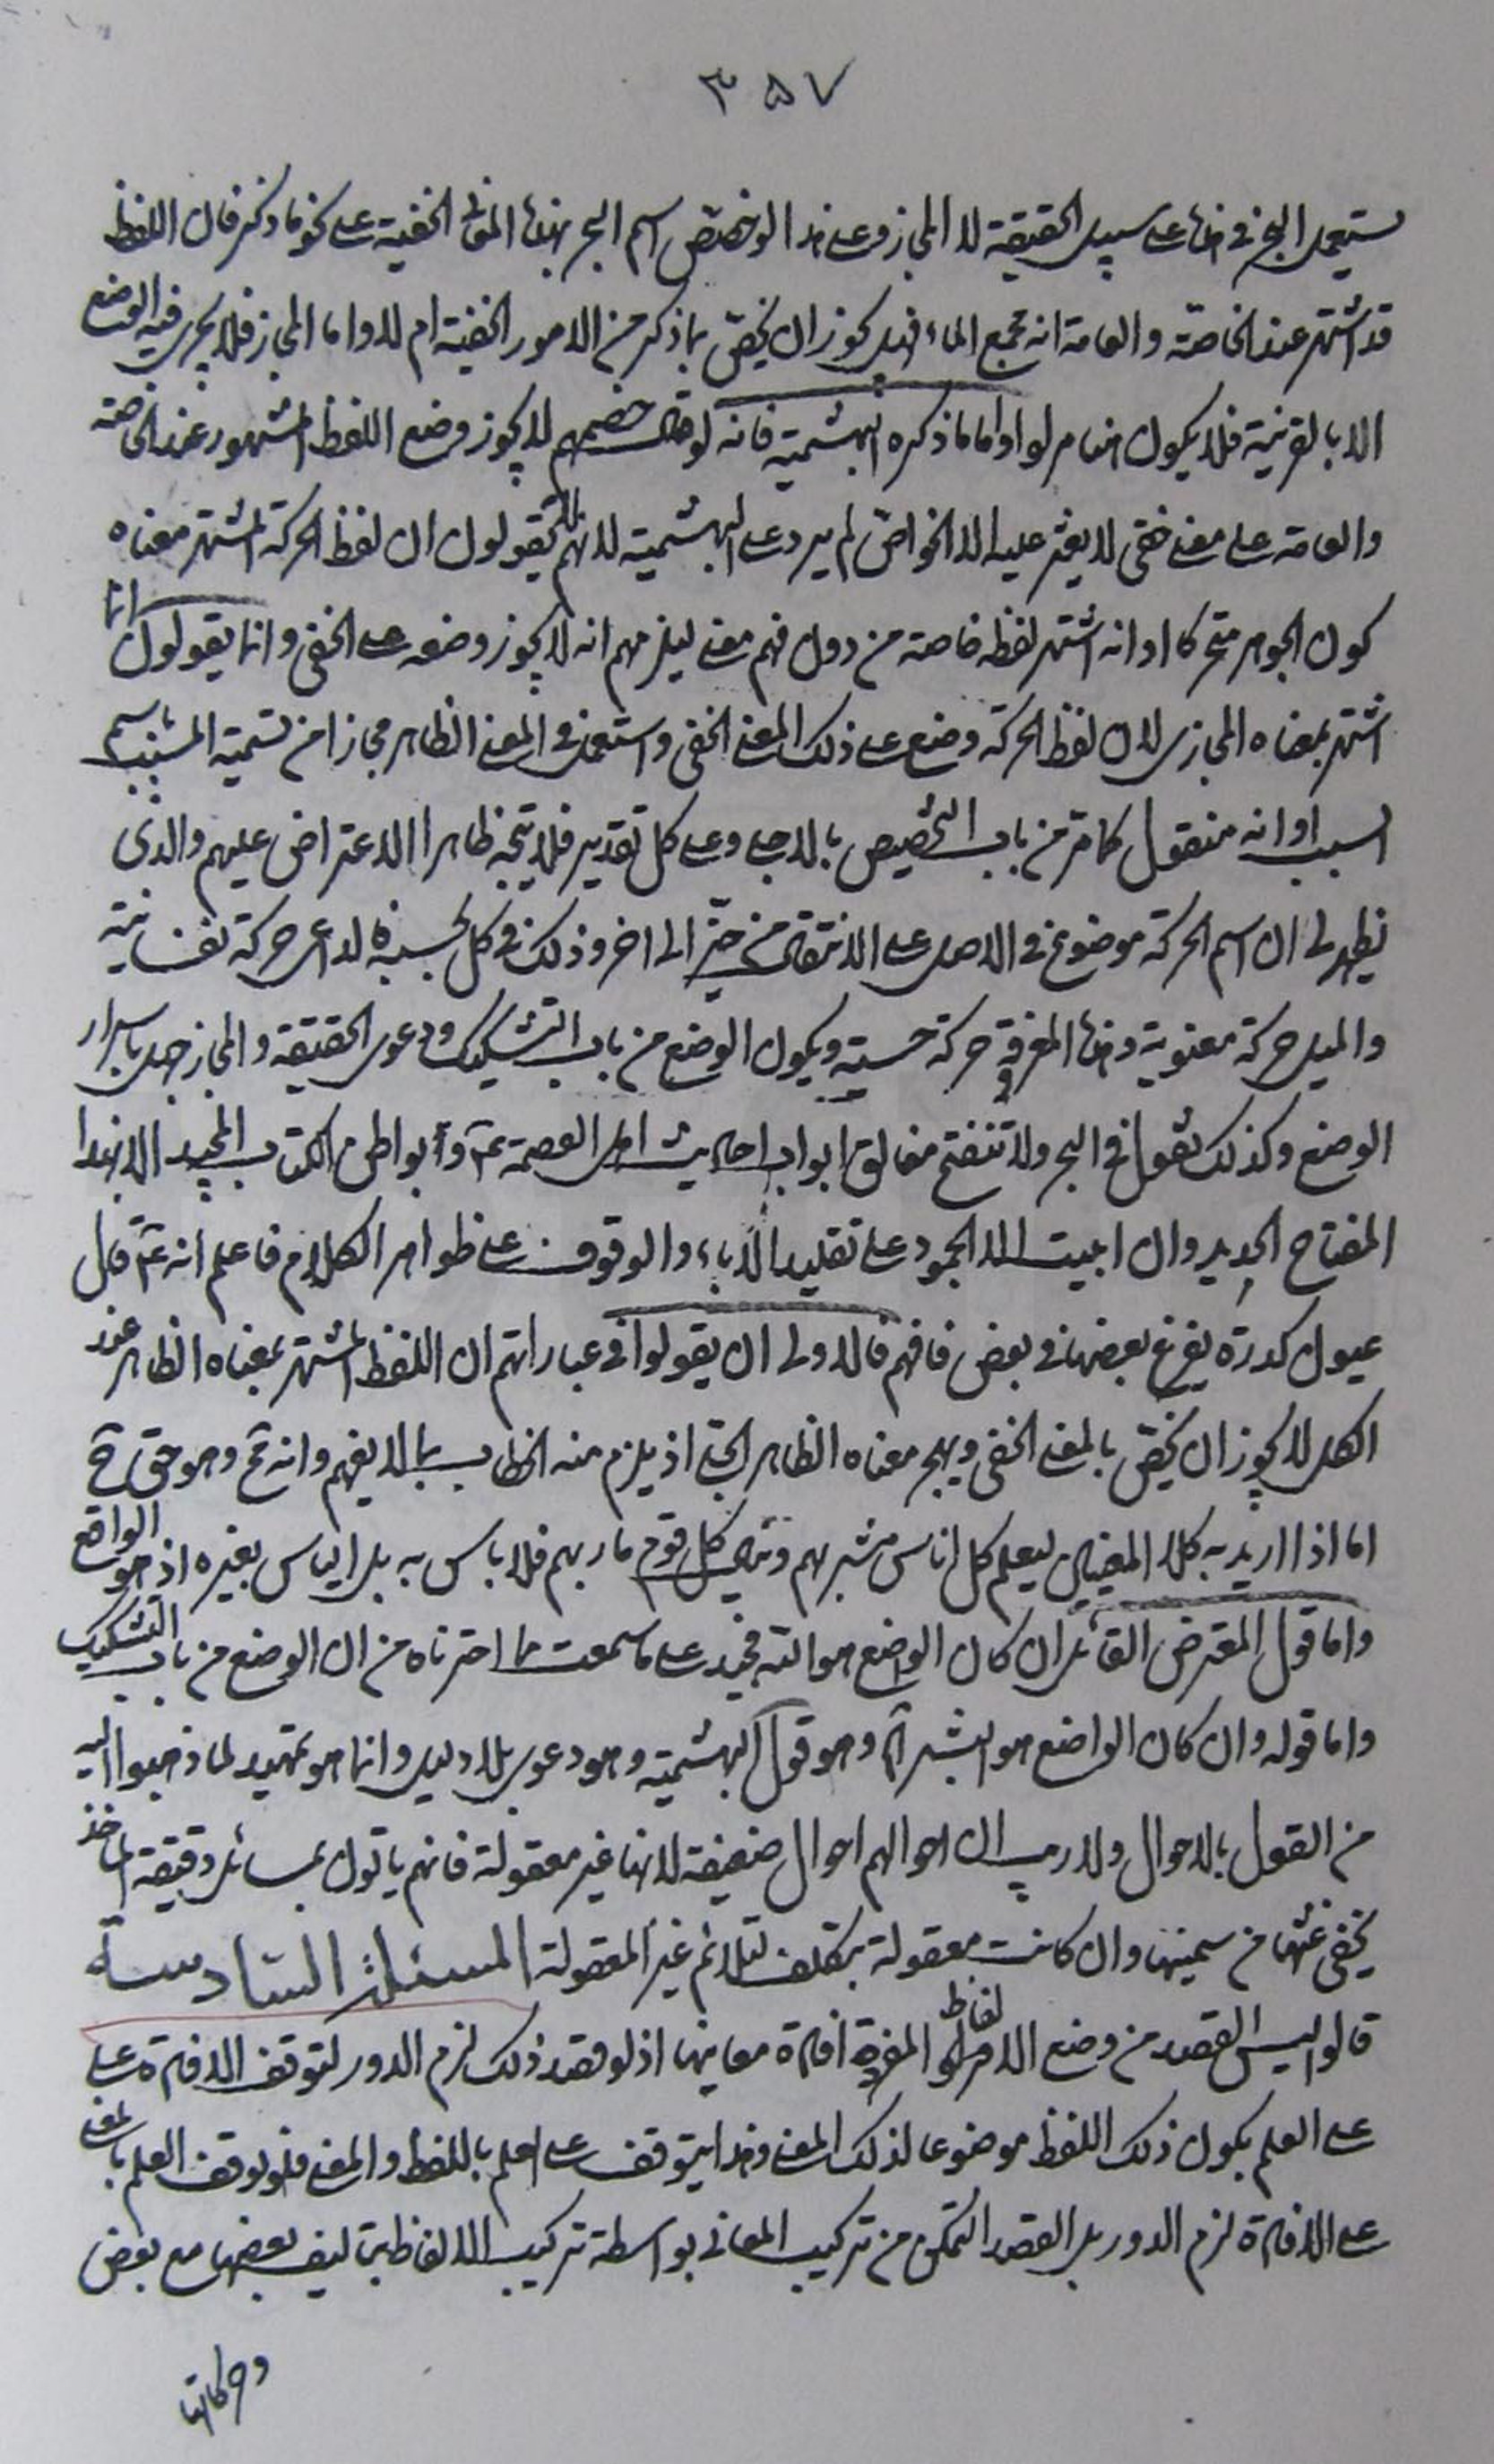 ٣٥٧
يستعمل البحر في هذا على سبيل الحقيقة لا المجاز وعلى هذا لو خصّص اسم البحر بهذا المعنى الخفية على نحو ما ذكر فان اللفظ
قد اشتهر عند الخاصّة والعامة انه مجمع الماء فهل يجوز ان يخصّ بما ذكر من الامور الخفية ام لا واما المجاز فلا يجرى فيه الوضع
الا بالقرينة فلا يكون هنا مرادا واما ما ذكره البهشمية فانه لو قال خصمهم لا يجوز وضع اللفظ المشهور عند الخاصّة
والعامة على معنى خفى لا يعثر عليه الا الخواصّ لم يرد على البهشمية لانهم لا يقولون ان لفظ الحركة المشتهر معناه
كون الجوهر متحركا او انه اشتهر لفظه خاصة من دون فهم معنى ليلزمهم انه لا يجوز وضعه على الخفى وانما يقولون انما
اشتهر بمعناه المجازى لان لفظ الحركة وضع على ذلك المعنى الخفى واستعمل في المعنى الظاهر مجازا من تسمية المسبّب باسم
السبب او انه منقول كما مرّ من باب التخصيص بالاجلى وعلى كل تقدير فلا يتّجه ظاهرا الاعتراض عليهم والذى
يظهر لى ان اسم الحركة موضوع في الاصل على الانتقال من حيّز الى اخر وذلك في كل بحسبه فالدواعى حركة نفسانية
والميل حركة معنوية وهذا المعرفة حركة حسية ويكون الوضع من باب التشكيك ودعوى الحقيقة والمجاز جهل باسرار
الوضع وكذلك نقول في البحر ولا تنفتح مغالق ابواب احاديث اهل العصمة عم وابواطن الكتاب المجيد الا بهذا
المفتاح الجديد وان ابيت الا الجمود على تقليد الآباء والوقوف على ظواهر الكلام فاعلم انه عم قال
عيون كدرة يفرغ بعضها في بعض فافهم فالاولى ان يقولوا في عباراتهم ان اللفظ المشتهر بمعناه الظاهر عند
الكل لا يجوز ان يخصّ بالمعنى الخفى ويهجر معناه الظاهر الجلى اذ يلزم منه الخطاب بما لا يفهم وانه قبح وهو حق ح
اما اذا اريد به كلا المعنيين ليعلم كل اناس مشربهم وينال كل قوم ماربهم فلا باس به بل الباس بغيره اذ هو الواقع
واما قول المعترض القائل ان كان الواضع هو الله فجيد على ما سمعت مما اخترناه من ان الوضع من باب التشكيك
واما قوله وان كان الواضع هو البشر آه وهو قول البهشمية وهو دعوى بلا دليل وانما هو تمهيد لما ذهبوا اليه
من القول بالاحوال ولا ريب ان احوالهم احوال ضعيفة لانها غير معقولة فانهم ياتون بمسائل دقيقة الماخذ
يخفى غثها من سمينها وان كانت معقولة بتكلف لتلائم غير المعقولة المسئلة السادسة
قالوا ليس القصد من وضع الالفاظ المفردة افادة معانيها اذ لو قصد ذلك لزم الدور لتوقف الافادة على
على العلم بكون ذلك اللفظ موضوعا لذلك المعنى وهذا يتوقف على العلم باللفظ والمعنى فلو توقف العلم بالمعنى
على الافادة لزم الدور بل القصد التمكن من تركيب المعانى بواسطة تركيب الالفاظ بتاليف بعضها مع بعض
وحركاتها